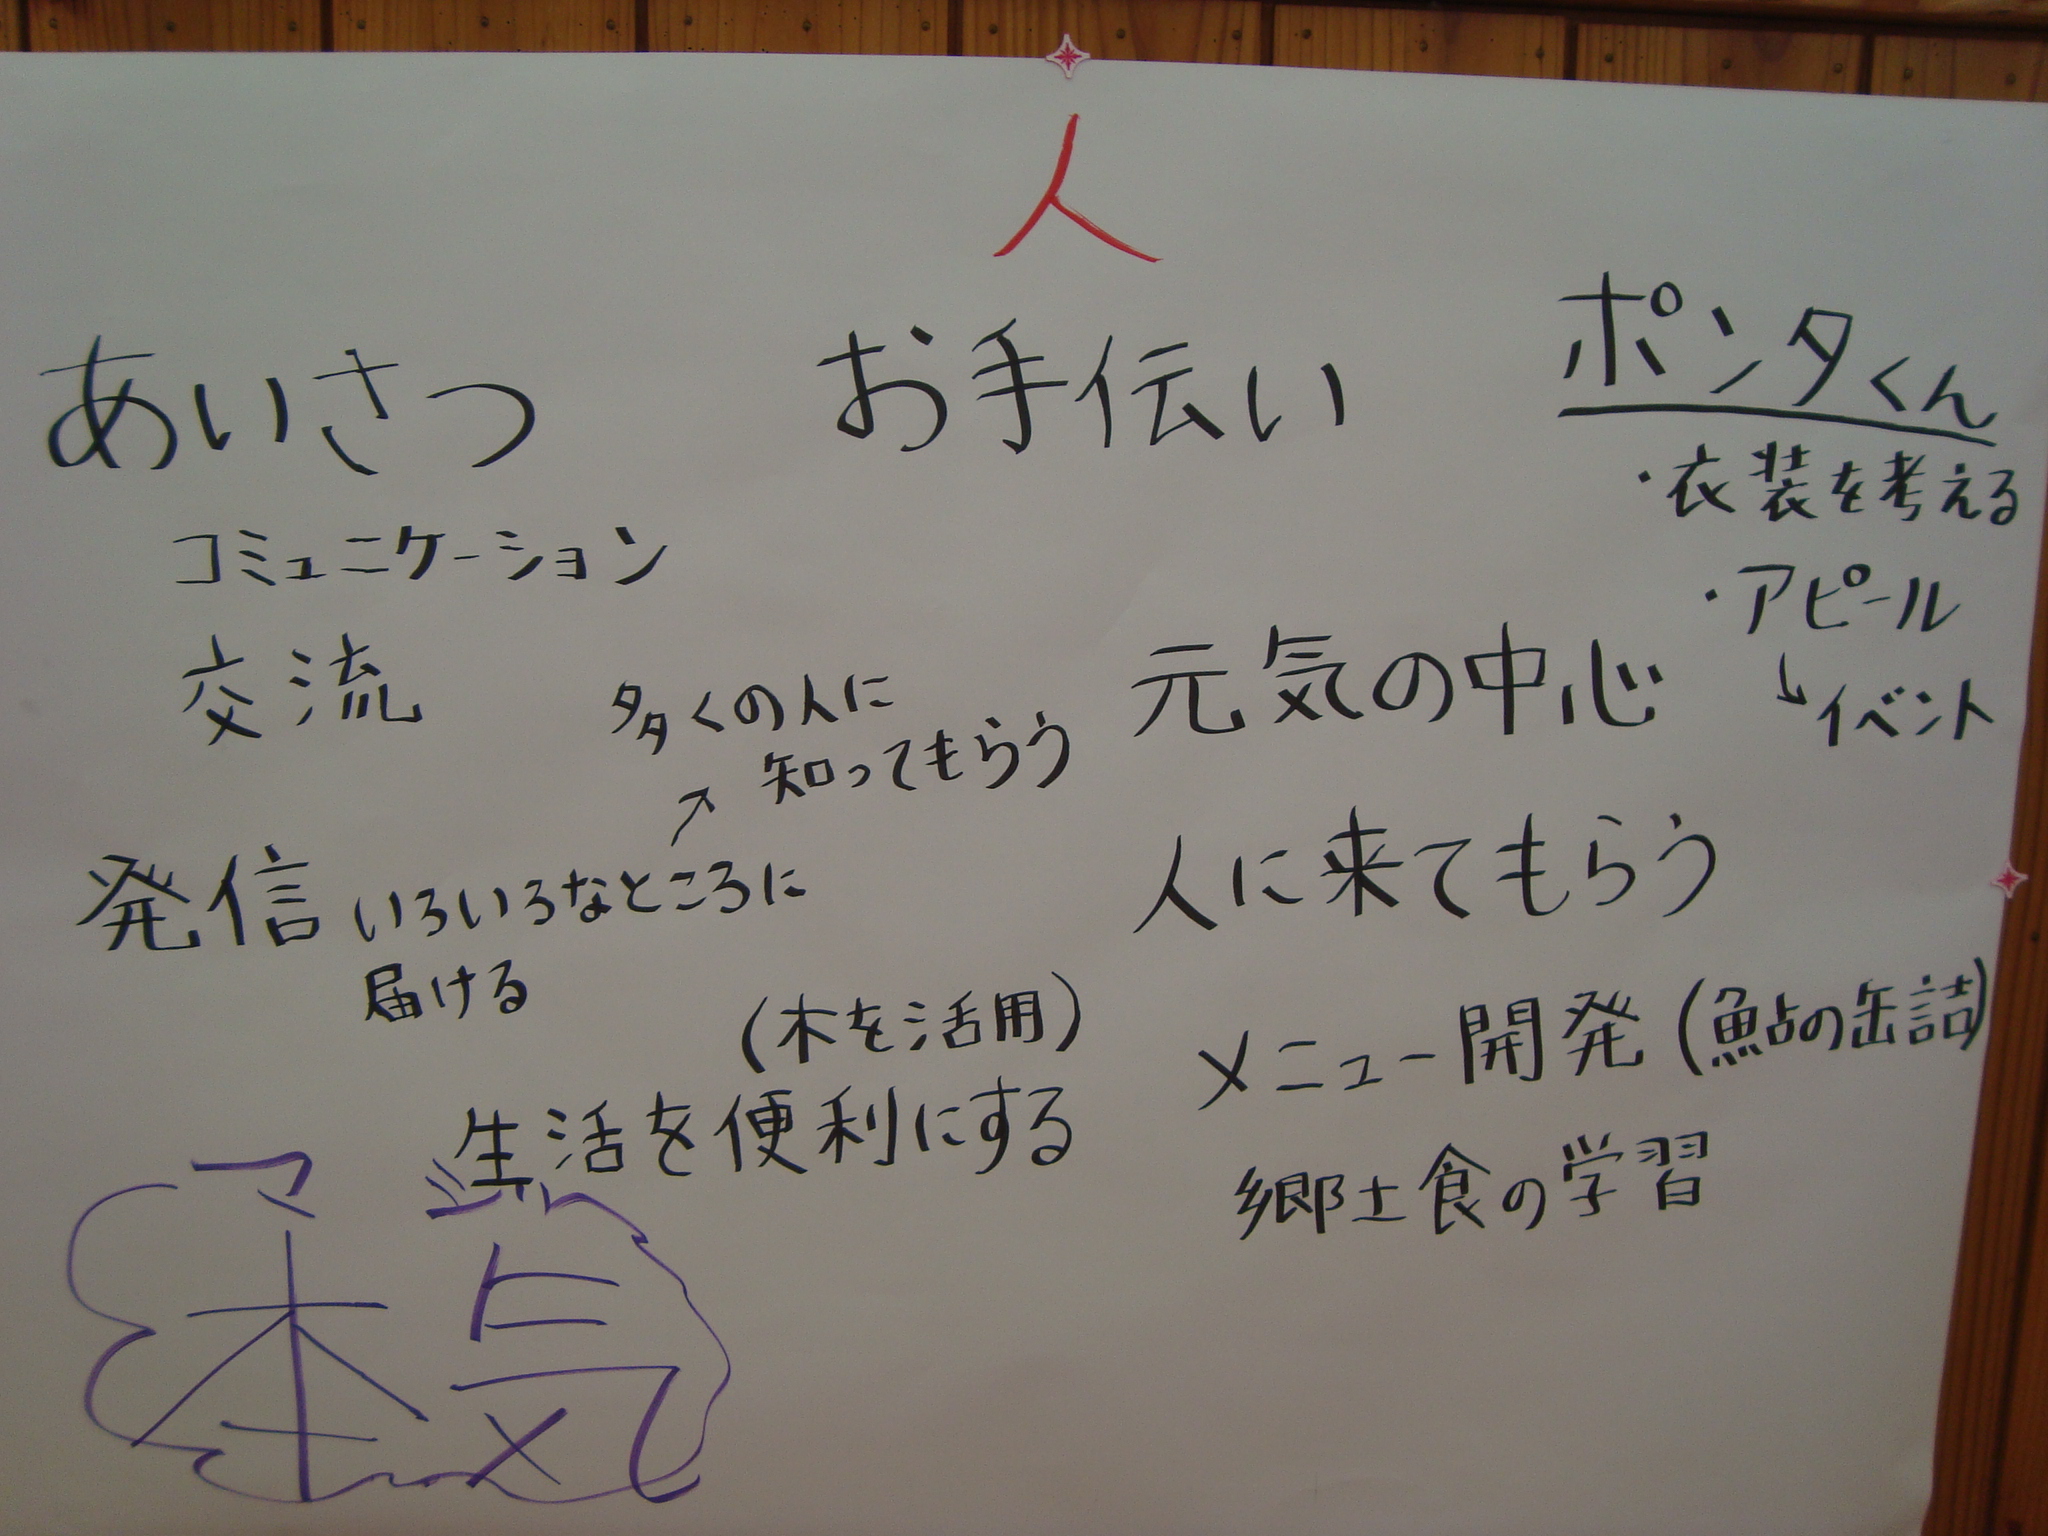 人
あいさつ
お手伝い
ポンタくん
・衣装を考える
・アピール
↓
イベント
コミュニケーション
交流
多くの人に
知ってもらう
↗
発信 いろいろなところに
届ける
(木を活用)
生活を便利にする
元気の中心
人に来てもらう
メニュー開発(鮎の缶詰)
郷土食の学習
マジ
本気